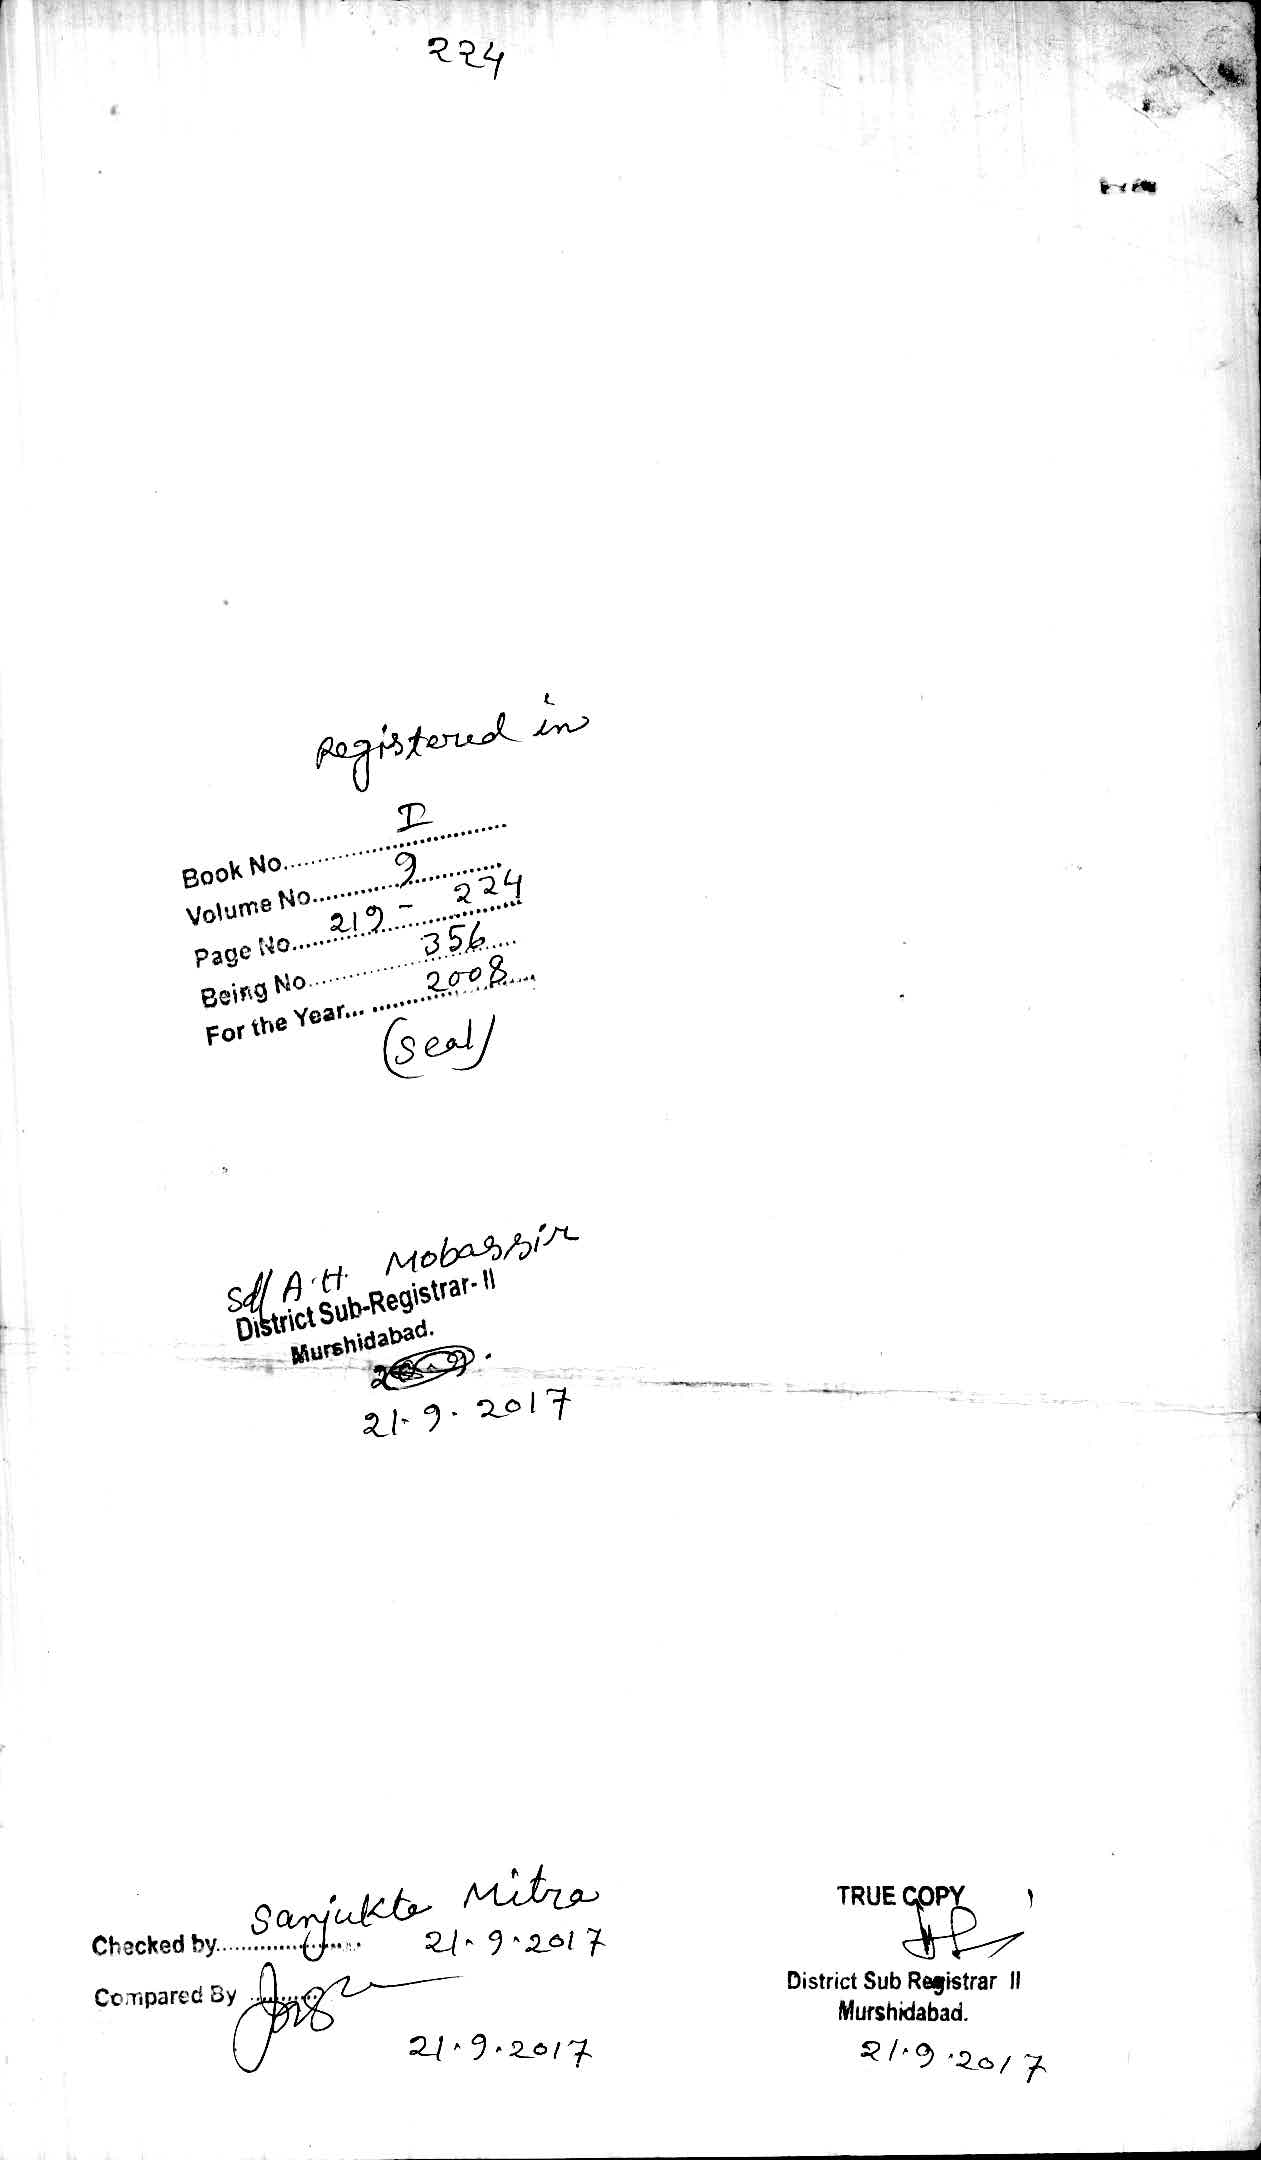 224
Registered in
Book No. I
Volume No. 9
Page No. 219 - 224
Being No. 356
For the Year... 2008
(Seal)
Sd/ A.H. Mobassir
District Sub-Registrar- II
Murshidabad.
21.9.2017
Sanjukta Mitra
Checked by 21.9.2017
Compared By
21.9.2017
TRUE COPY
District Sub Registrar II
Murshidabad.
21.9.2017